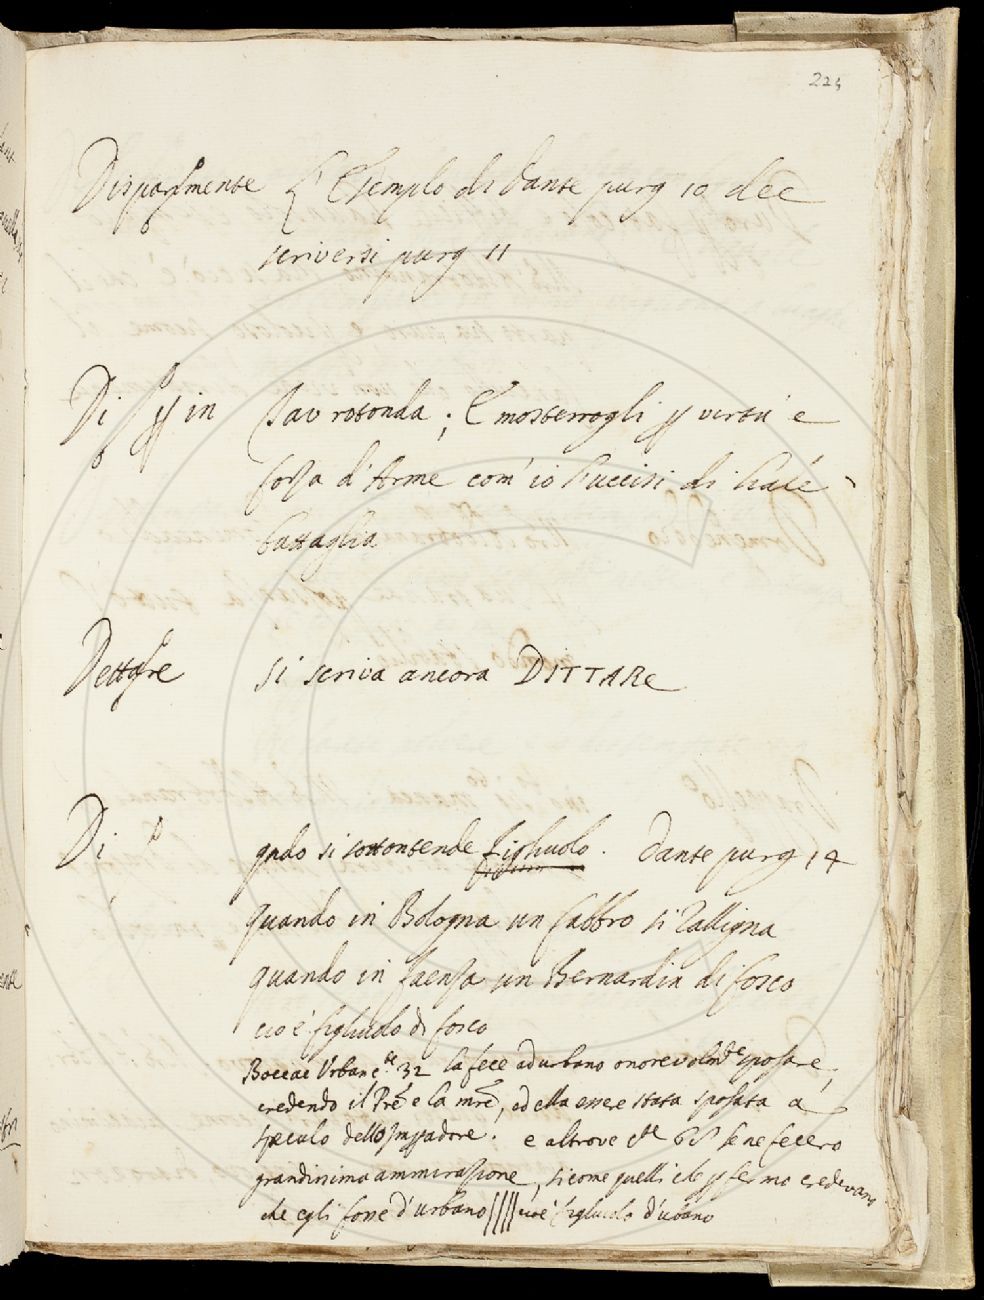 224
Disparmente L'Esemplo di Dante purg 10 dee
scriversi purg 11
Di in Tav rotonda; E mosterrogli per vertu' e
forza d'Arme com'io l'uccisi di leale
battaglia
Dettare si scriva ancora DITTARE
Di qndo si sottontende figliuolo. Dante purg 14
quando in Bologna un fabbro si ralligna
quando in faenza un Bernardin di fosco
cio è figliuolo di fosco
Boccac Urban cte 32 la fece ad urbano onorevolmte sposare,
credendo il Pre e la mre, ed ella essere stata sposata a
speculo dello Impadore. e altrove cte 65 se ne fecero
grandissima ammirazione, sicome quelli che per fermo credevano
che egli fosse d'urbano cioè figliuolo d'urbano